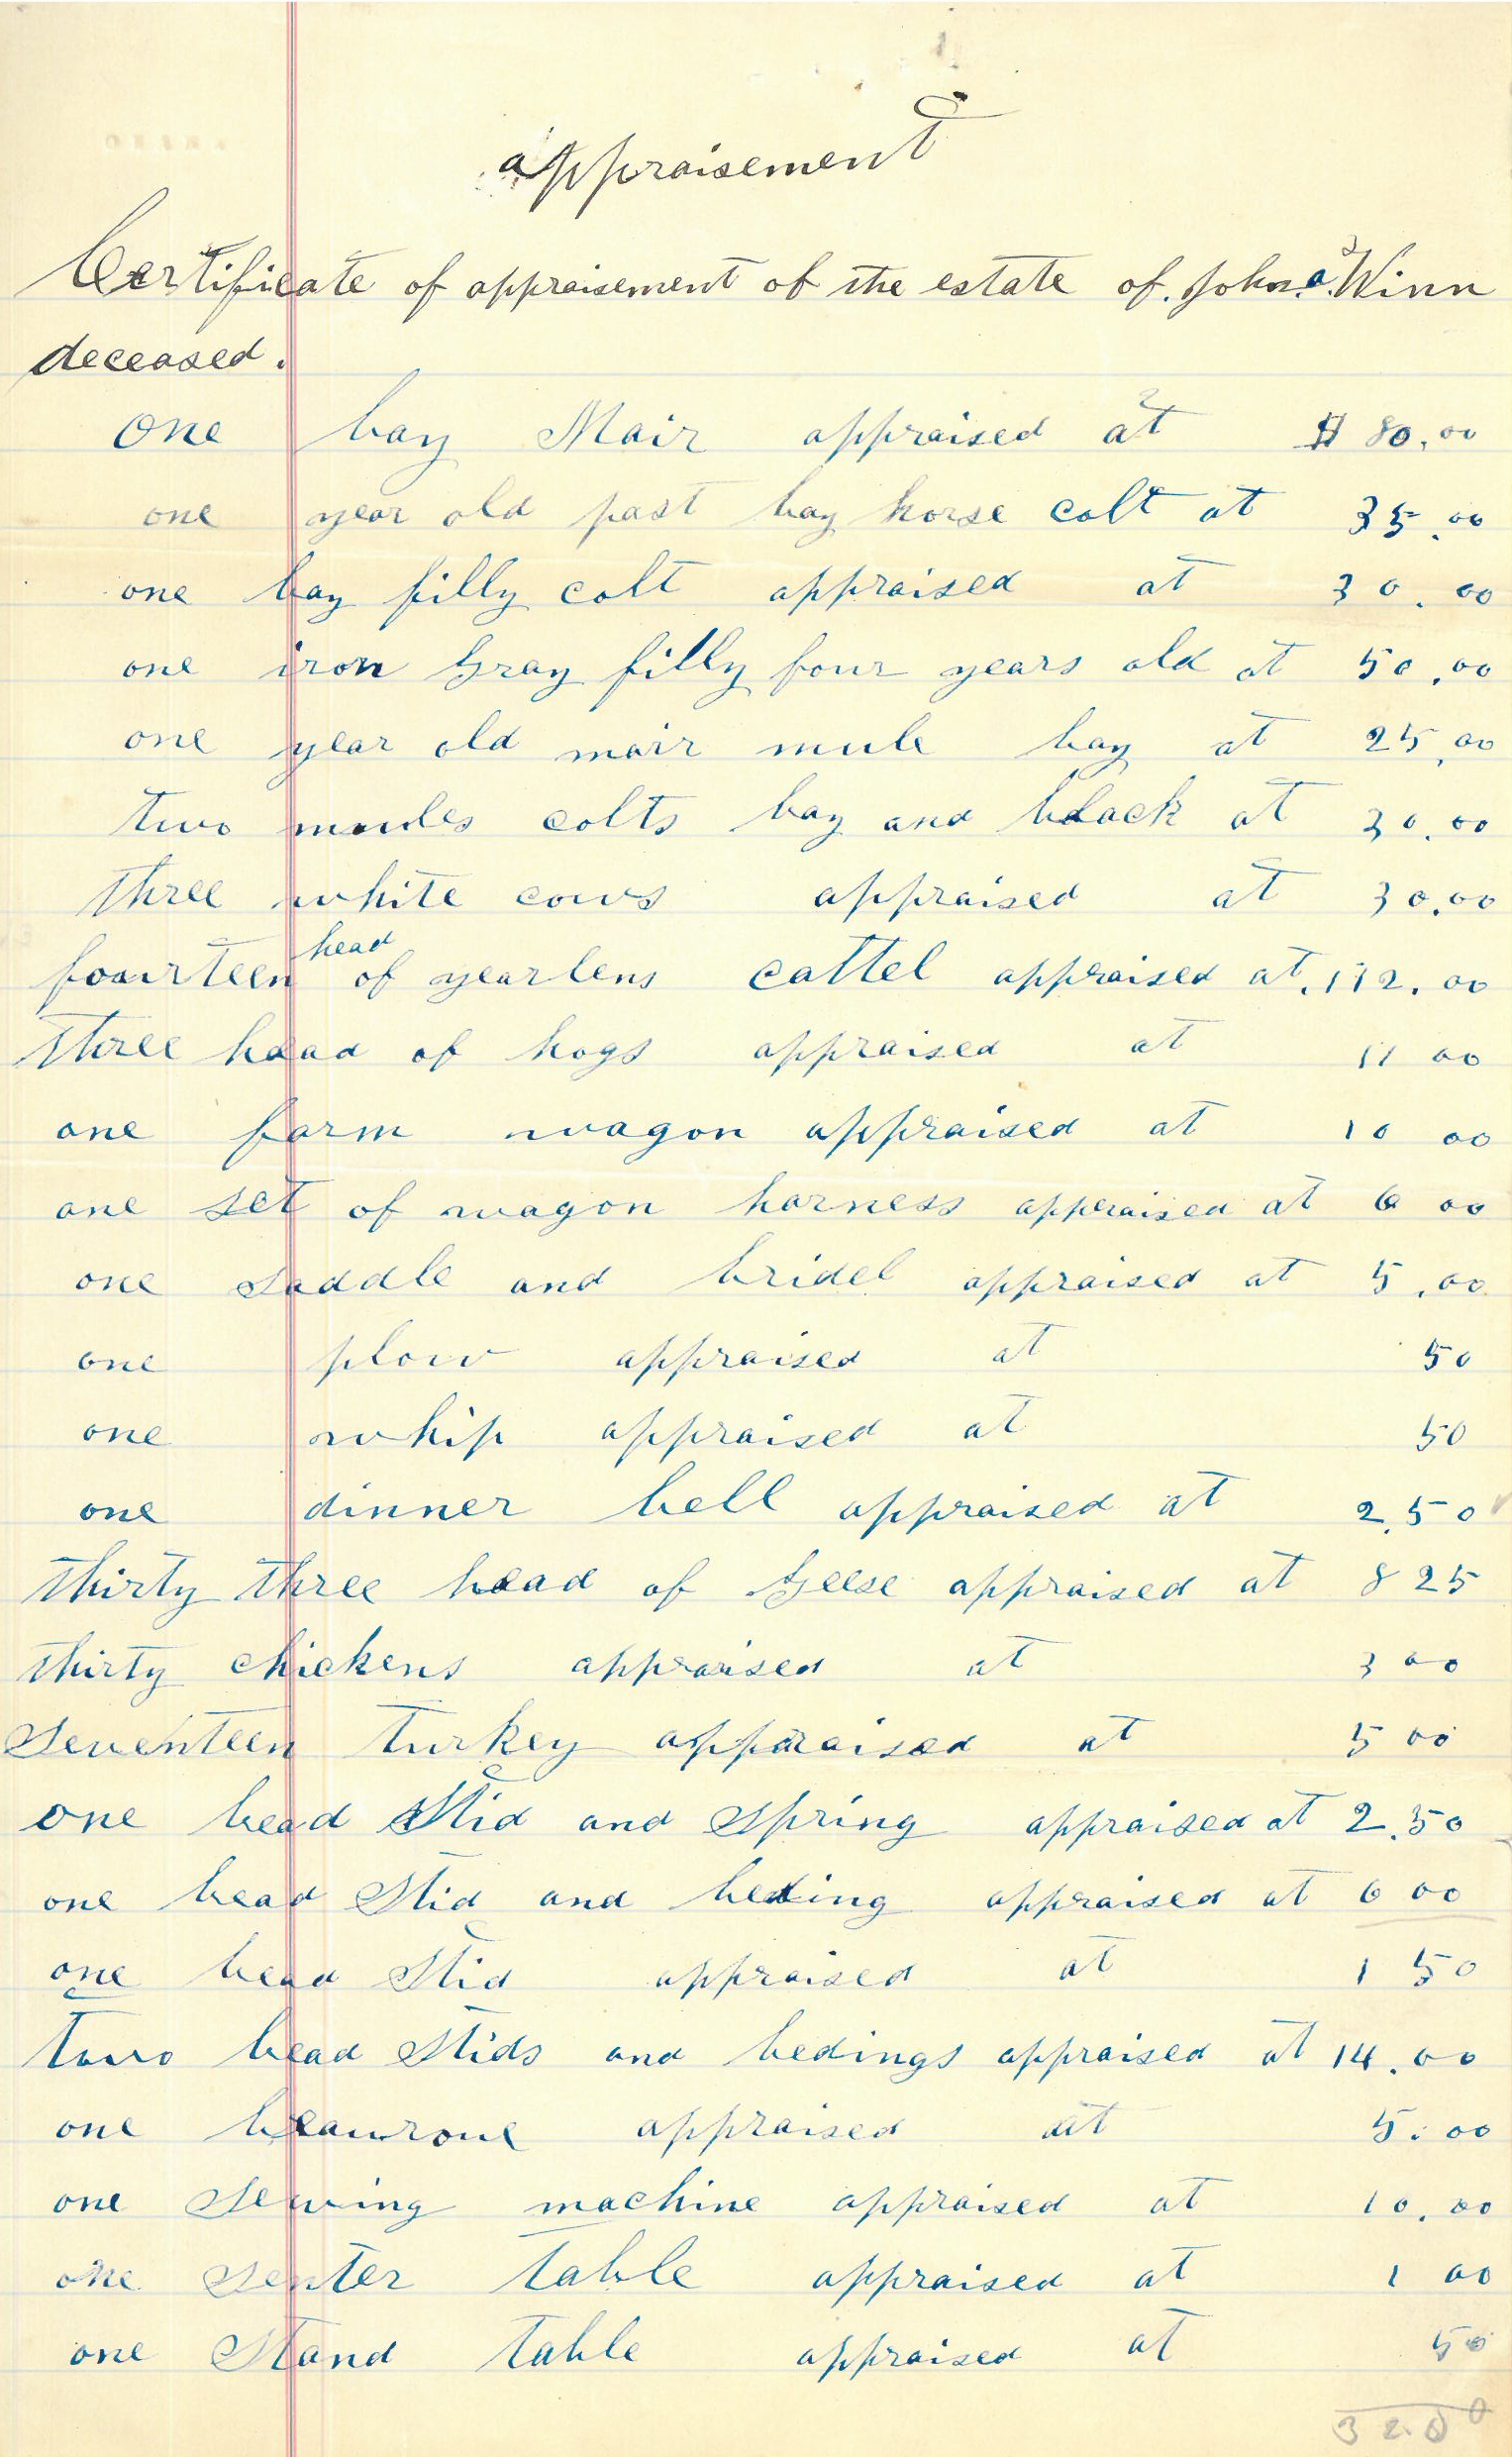 appraisement
Certificate of appraisement of the estate of John a Winn
deceased.
One bay Mair appraised at $ 80.00
one year old past bay horse colt at 35.00
one bay filly colt appraised at 30.00
one iron gray filly four years old at 50.00
one year old mair mule bay at 25.00
two mules colts bay and black at 30.00
three white cows appraised at 30.00
fourteen head of yearlens cattel appraised at 112.00
three head of hogs appraised at 11 00
one farm wagon appraised at 10 00
one set of wagon harness appraised at 6 00
one saddle and bridel appraised at 5.00
one plow appraised at 50
one whip appraised at 50
one dinner bell appraised at 2.50
thirty three head of geese appraised at 8 25
thirty chickens appraised at 3 00
seventeen turkey appraised at 5 00
one bead Stid and Spring appraised at 2.50
one bead Stid and beding appraised at 6 00
one bead Stid appraised at 1 50
two bead Stids and bedings appraised at 14.00
one appraised at 5.00
one Sewing machine appraised at 10.00
one Senter table appraised at 1 00
one Stand table appraised at 50